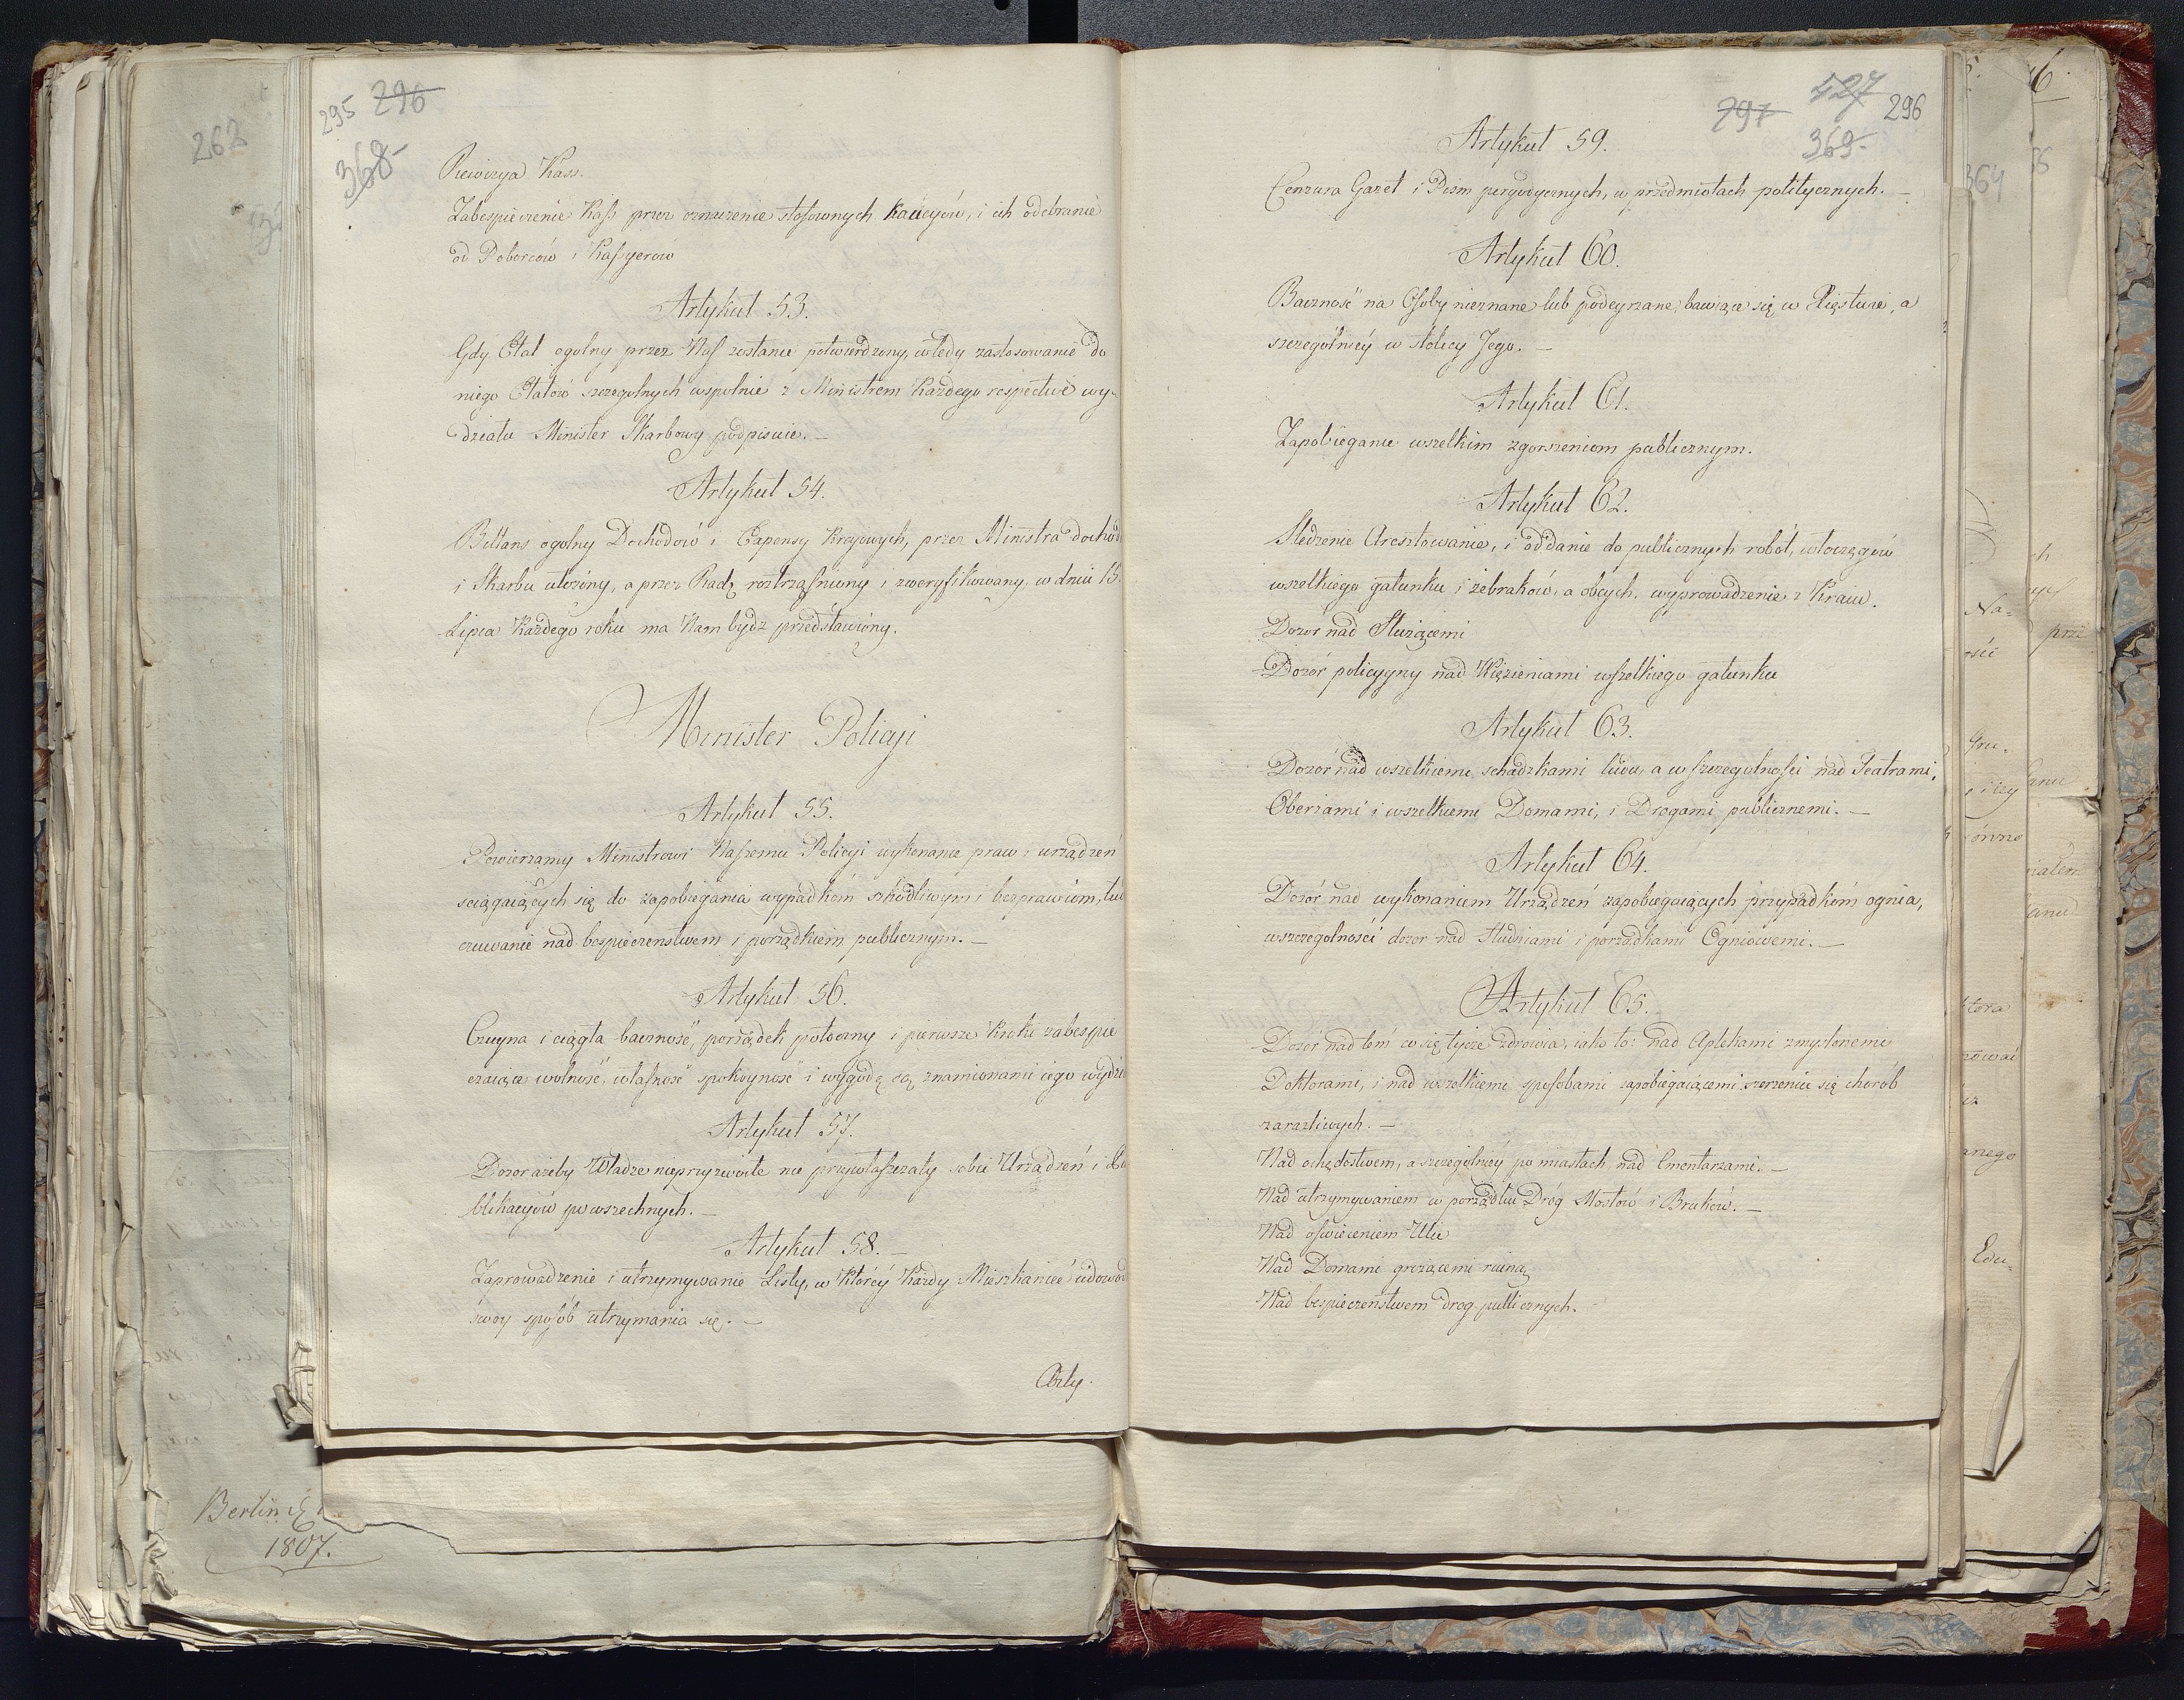 295 296
368
Rewizya Kass.
Zabespieczenie Kass przez oznaczenie stosownych Kaucyów, i ich odebranie
od Poborców i Kassyerów
Artykuł 53.
Gdy Etat ogolny przez Nas zostanie potwierdzony, wtedy zastosowanie do
niego Etatów szczegolnych wspolnie z Ministrem Każdego respective wy-
działu Minister Skarbowy podpisuie. —
Artykuł 54.
Billans ogolny Dochodów i Expensy Krajowych, przez Ministra docho
i Skarbu ułożony, a przez Radę roztrząśniony i zweryfikowany, w dniu 15.
Lipca Każdego roku ma Nam bydz przedstawiony.
Minister Policyi
Artykuł 55.
Powierzamy Ministrowi Naszemu Policyi wykonanie praw i urządzeń
sciągaiących się do zapobiegania wypadkom szkodliwym i bezprawiom, tu
czuwanie nad bespieczenstwem i porządkiem publicznym. —
Artykuł 56.
Czuyna i ciągła baczność, porządek potoczny i pierwsze Kroki zabespie
czaiące wolność, własność spokoyność i wygodę są znamionami iego wydzi
Artykuł 57.
Dozor ażeby Władze nieprzyzwoite nie przywłaszczały sobie Urządzeń i Pu
blikacyów powszechnych. —
Artykuł 58. —
Zaprowadzenie i utrzymywanie Listy, w Którey Każdy Mieszkaniec udowod
swoy sposób utrzymania się. —
Arty.
297 427 296
369
Artykuł 59.
Cenzura Gazet i Pism peryodycznych, w przedmiotach politycznych. —
Artykuł 60.
Baczność na Osoby nieznane lub podeyrzane, bawiące się w Xięstwie, a
szczególniey w stolicy Jego. —
Artykuł 61.
Zapobieganie wszelkim zgorszeniom publicznym.
Artykuł 62.
Sledzenie Aresztowanie, i oddanie do publicznych robót, włoczęgów
wszelkiego gatunku i żebraków, a obcych, wyprowadzenie z Kraiu.
Dozor nad Służącemi
Dozór policyyny nad Więzieniami wszelkiego gatunku
Artykuł 63.
Dozór nad wszelkiemi schadzkami ludu, a w szczegulności nad Teatrami,
Oberżami i wszelkiemi Domami, i Drogami publicznemi. —
Artykuł 64.
Dozór nad wykonaniem Urządzeń zapobiegaiących przypadkom ognia,
wszczególności dozor nad Studniami i porządkami Ogniowemi. —
Artykuł 65.
Dozór nad tem co się tycze zdrowia, iako to: nad Aptekami zmyślonemi
Doktorami, i nad wszelkiemi sposobami zapobiegaiącemi szerzeniu się chorób
zaraźliwych. —
Nad ochędostwem, a szczególniey po miastach, nad Cmentarzami. —
Nad utrzymywaniem w porządku Dróg Mostów i Bruków. —
Nad oświeceniem Ulic
Nad Domami grożącemi ruiną
Nad bespieczeństwem drog publicznych. —
262
Berlin
1807.
364
6
Na-
ości
Gru-
Edu-